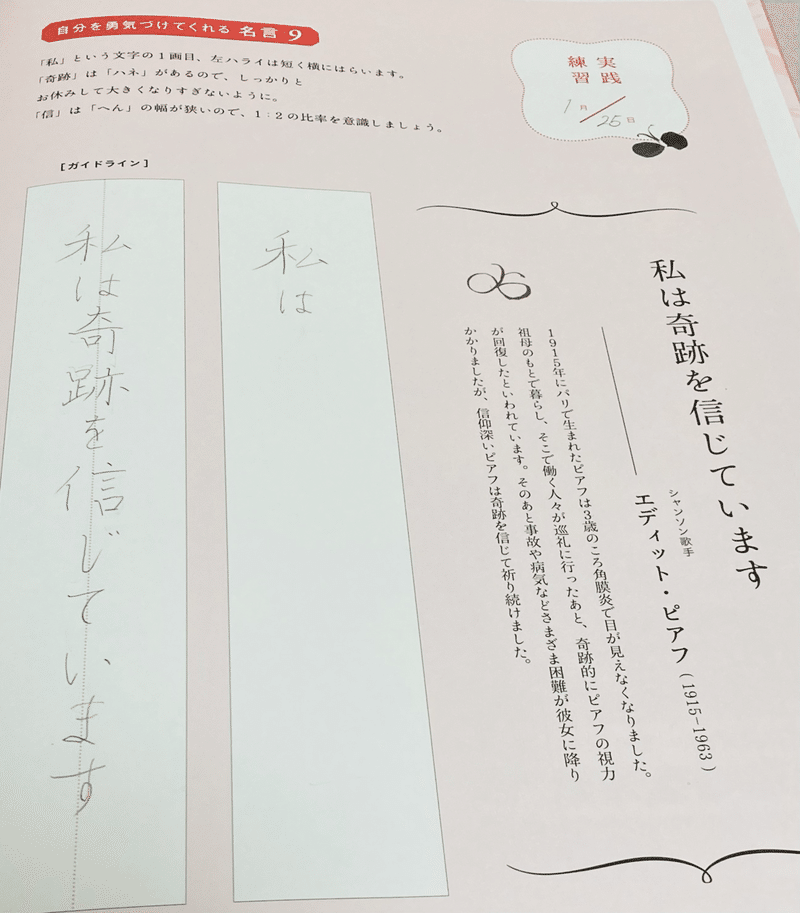 自分を勇気づけてくれる 名言 9
「私」という文字の1画目、左ハライは短く横にはらいます。
「奇跡」は「ハネ」があるので、しっかりと
お休みして大きくなりすぎないように。
「信」は「へん」の幅が狭いので、1:2の比率を意識しましょう。
実践
練習
1月
25日
私は奇跡を信じています
シャンソン歌手
エディット・ピアフ(1915-1963)
1915年にパリで生まれたピアフは3歳のころ角膜炎で目が見えなくなりました。
祖母のもとで暮らし、そこで働く人々が巡礼に行ったあと、奇跡的にピアフの視力
が回復したといわれています。そのあと事故や病気などさまざま困難が彼女に降り
かかりましたが、信仰深いピアフは奇跡を信じて祈り続けました。
私は
[ガイドライン]
私は奇跡を信じています